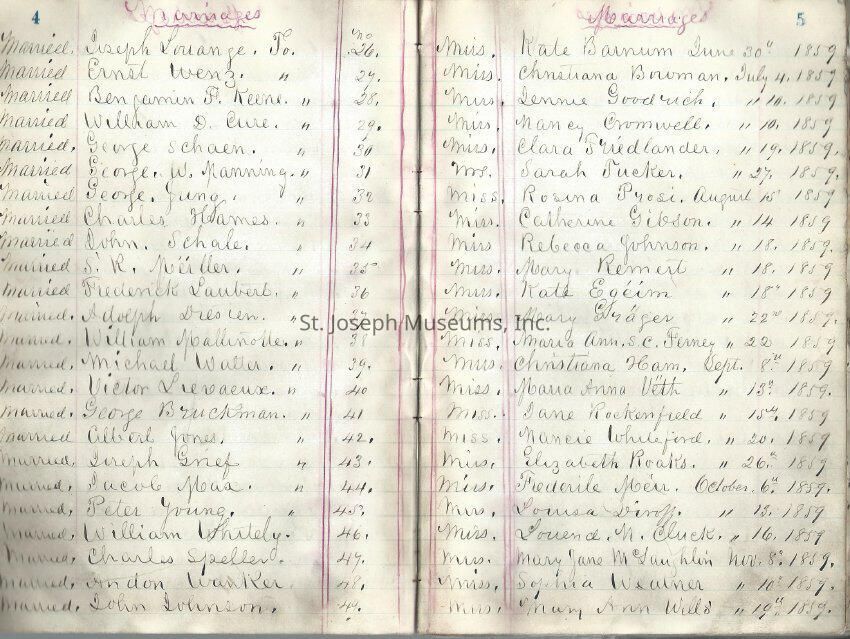 4 Marriages Marriages 5
no
Married. Joseph Louange. To. 26. Miss. Kate Barnum June 30" 1859
Married Ernst Wenz. " 27. Miss. Christiana Bowman. July 4. 1859
Married Benjamin F. Keene. " 28. Miss Jennie Goodrich. " 10. 1859
Married William D. Cure. " 29. Miss. Nancy Cromwell. " 10. 1859
Married. George Schaen. " 30 Miss. Clara Friedlander. " 19. 1859.
Married George. W. Manning. " 31 Mrs. Sarah Tucker. " 27. 1859.
Married George. Jung. " 32 Miss. Rosina Prosi. August 15 1859
Married Charles Hames. " 33 Miss. Catherine Gibson. " 14 1859
Married John. Schale. " 34 Miss Rebecca Johnson. " 18. 1859.
Married S. R. Meiller. " 35 Miss. Mary Remert " 18. 1859
Married Frederick Laubert. " 36 Miss. Kate " 18" 1859
Married. Adolph Diesten. " Mary Gräger " 22nd 1859.
St. Joseph Museums, Inc.
Married. William " Miss. Maria Ann. S. C. Ferney " 22 1859
Married. Michael Walter. " 39. Miss. Christiana Ham. Sept. 8th 1859
Married. Victor Lievaeux. " 40 Miss. Maria Anna Veth " 13" 1859
Married. George Bruckman. " 41 Miss. Jane Rockenfield " 15th 1859
Married. Albert Jones. " 42. Miss. Nancie Whiteford. " 20. 1859
Married. Joseph Grief " 43. Miss. Elizabeth Roaks. " 26." 1859.
Married. Jacob Max. " 44. Miss. Frederile Meir. October. 6" 1859.
Married. Peter Young. " 45. Miss. Louisa " 13. 1859.
Married. William Whitely. " 46. Miss. Louend. M. Cluck. " 16. 1859
Married. Charles Speller. " 47. Miss. Mary Jane McLaughlin Nov. 8" 1859.
Married. Andon Wanker. " 48. Miss. Sophia Weatner " 10" 1859
Married. John Johnson. " 49. Miss. Mary Ann Wills " 19th 1859.